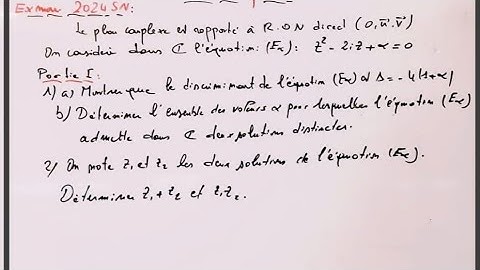 Examen 2024 SN:
Le plan complexe est rapporté à R.O.N direct (O,u⃗.v⃗)
On considère dans ℂ l'équation: (Eα): z² - 2iz + α = 0
Partie I:
1) a) Montrer que le discriminant de l'équation (Eα) est Δ = -4(1+α)
b) Déterminer l'ensemble des valeurs α pour lesquelles l'équation (Eα)
admette dans ℂ deux solutions distinctes.
2/ On note z₁ et z₂ les deux solutions de l'équation (Eα).
Déterminer z₁+z₂ et z₁z₂.